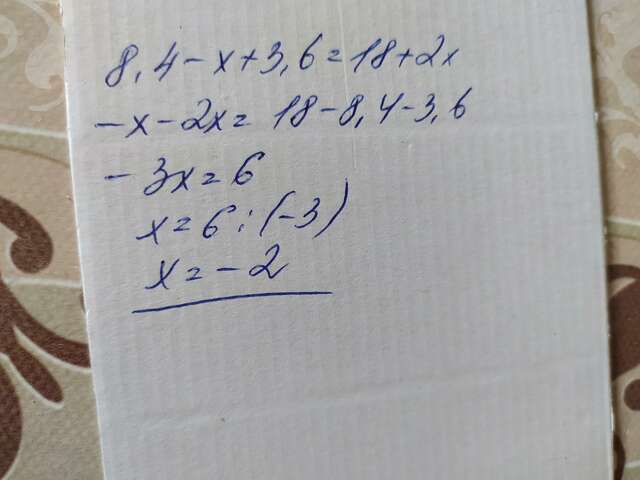 8,4-x+3,6=18+2x
-x-2x=18-8,4-3,6
-3x=6
x=6:(-3)
x=-2